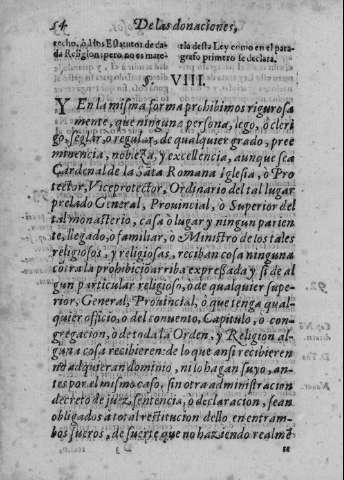 54 De las donaciones,
recho, ò à los Estatutos de ca-
da Religion; pero no es mate-
ria desta Ley como en el para-
grafo primero se declara.
§. VIII.
Y En la misma forma prohibimos rigurosa
mente, que ninguna persona, lego, ò cleri
go, seglar, o regular, de qualquier grado, pree
minencia, nobleza, y excellencia, aunque sea
Cardenal de la Sãta Romana Iglesia, ò Pro
tector, Viceprotector, Ordinario del tal lugar
prelado General, Prouincial, o Superior del
tal monasterio, casa ò lugar y ningun parien
te, llegado, o familiar, o Ministro de los tales
religiosos, y religiosas, reciban cosa ninguna
cõtra la prohibiciõ arriba expressada y si de al
gun particular religioso, ò de qualquier supe-
rior, General, Prouincial, ò que tenga qual-
quier officio, o del conuento, Capitulo, o con-
gregacion, ò de toda la Orden, y Religion al-
guna cosa recibieren: de lo que ansi recibieren
no adquieran dominio, ni lo hagan suyo, an-
tes por el mismo caso, sin otra administracion
decreto de juez, sentencia, ò declaracion, sean
obligados à total restitucion dello en entram-
bos fueros, de suerte que no haziendo realmẽ